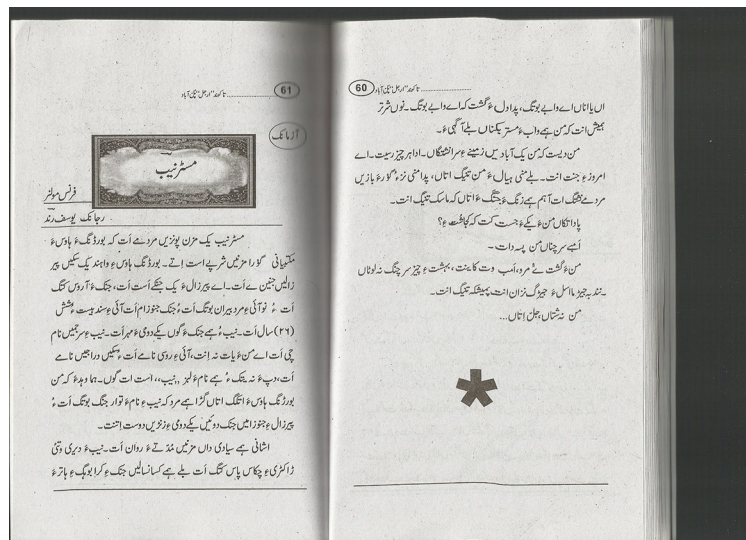 60
اں یا اناں اے واب بوتگ، پدا دل ءَ گشت کہ اے واب بوتگ۔ نوں شرتر
ہمیش انت کہ من ہے واب ءَ مستر بکناں بلے آگہی ءَ۔
من دیست کہ من یک آباد یں زمینے ءِ سرا نشتگاں۔ اِدا ہر چیز رسیت۔ اے
امروز ءِ جنت انت۔ بلے منی ہیال ءَ من تنیگ اتاں، پدا منی نزّ ءُ گوَر ءَ بازیں
مردمے نشتگ ات آ ہم ہے رنگ ءَ جنگ ءَ اتاں کہ ماسک تنیگ انت۔
پاد اتکاں من ءَ یکے ءَ جست کت کہ کجا شت ءِ؟
اُبے سر چناں من پہ دات۔
من ءَ گشت ئے مرد، اَمب وت کاینت، بہشت ءِ چیز سر چنگ نہ لوٹاں
من نہ شتاں جل اتاں...
61
آزمانک
مسٹر نیب
فرانس مولنر
رجانک یوسف رند
مسٹر نیب یک مزن پونزیں مردمے اَت کہ بورڈنگ ءَ ہاؤس ءَ
گوَر ا مزنیں شرپے است اِتے۔ بورڈنگ ہاؤس ءِ واہند یک سکیں پیر
زالیں جنین ے اَت۔ اے پیر زال ءَ یک جنکے اَست اَت، جنک ءَ آروس کتگ
اَت ءُ نوآئی ءِ مرد بیران بوتگ اَت ءُ جنک جنوزام اَت آئی ءِ سند بیست ءُ شش
(۲۶) سال اَت۔ نیب ءُ ہے جنک ءَ گوں یکے دومی ءَ مہر اَت۔ نیب ءِ سرجمیں نام
چی اَت اے من ءَ یات نہ اِنت، آئی ءِ روسی نامے اَت ءُ سکیں دراجیں نامے
اَت، دپ ءَ نہ یتک ءُ ہے نام ءِ لبز ,,نیب،، است ات گوں۔ ہما وہدءَ کہ من
بورڈنگ ہاؤس ءَ اتکگ اتاں گڑا ہے مرد کہ نیب ءِ نام ءَ توار جنگ بوتگ اَت ءُ
پیر زال ءِ جنوزامیں جنک دوئیں یکے دومی ءِ زند یں دوست اِتنت۔
اشانی ہے سیادی داں مزنیں مُدتے ءَ رواں اَت۔ نیب ءَ دیری وتئی
ڈاکٹری ءِ چکاس پاس کتگ اَت بلے ہے کسانسالیں جنک ءِ کرا بوہگ ءِ ہاتر ءَ